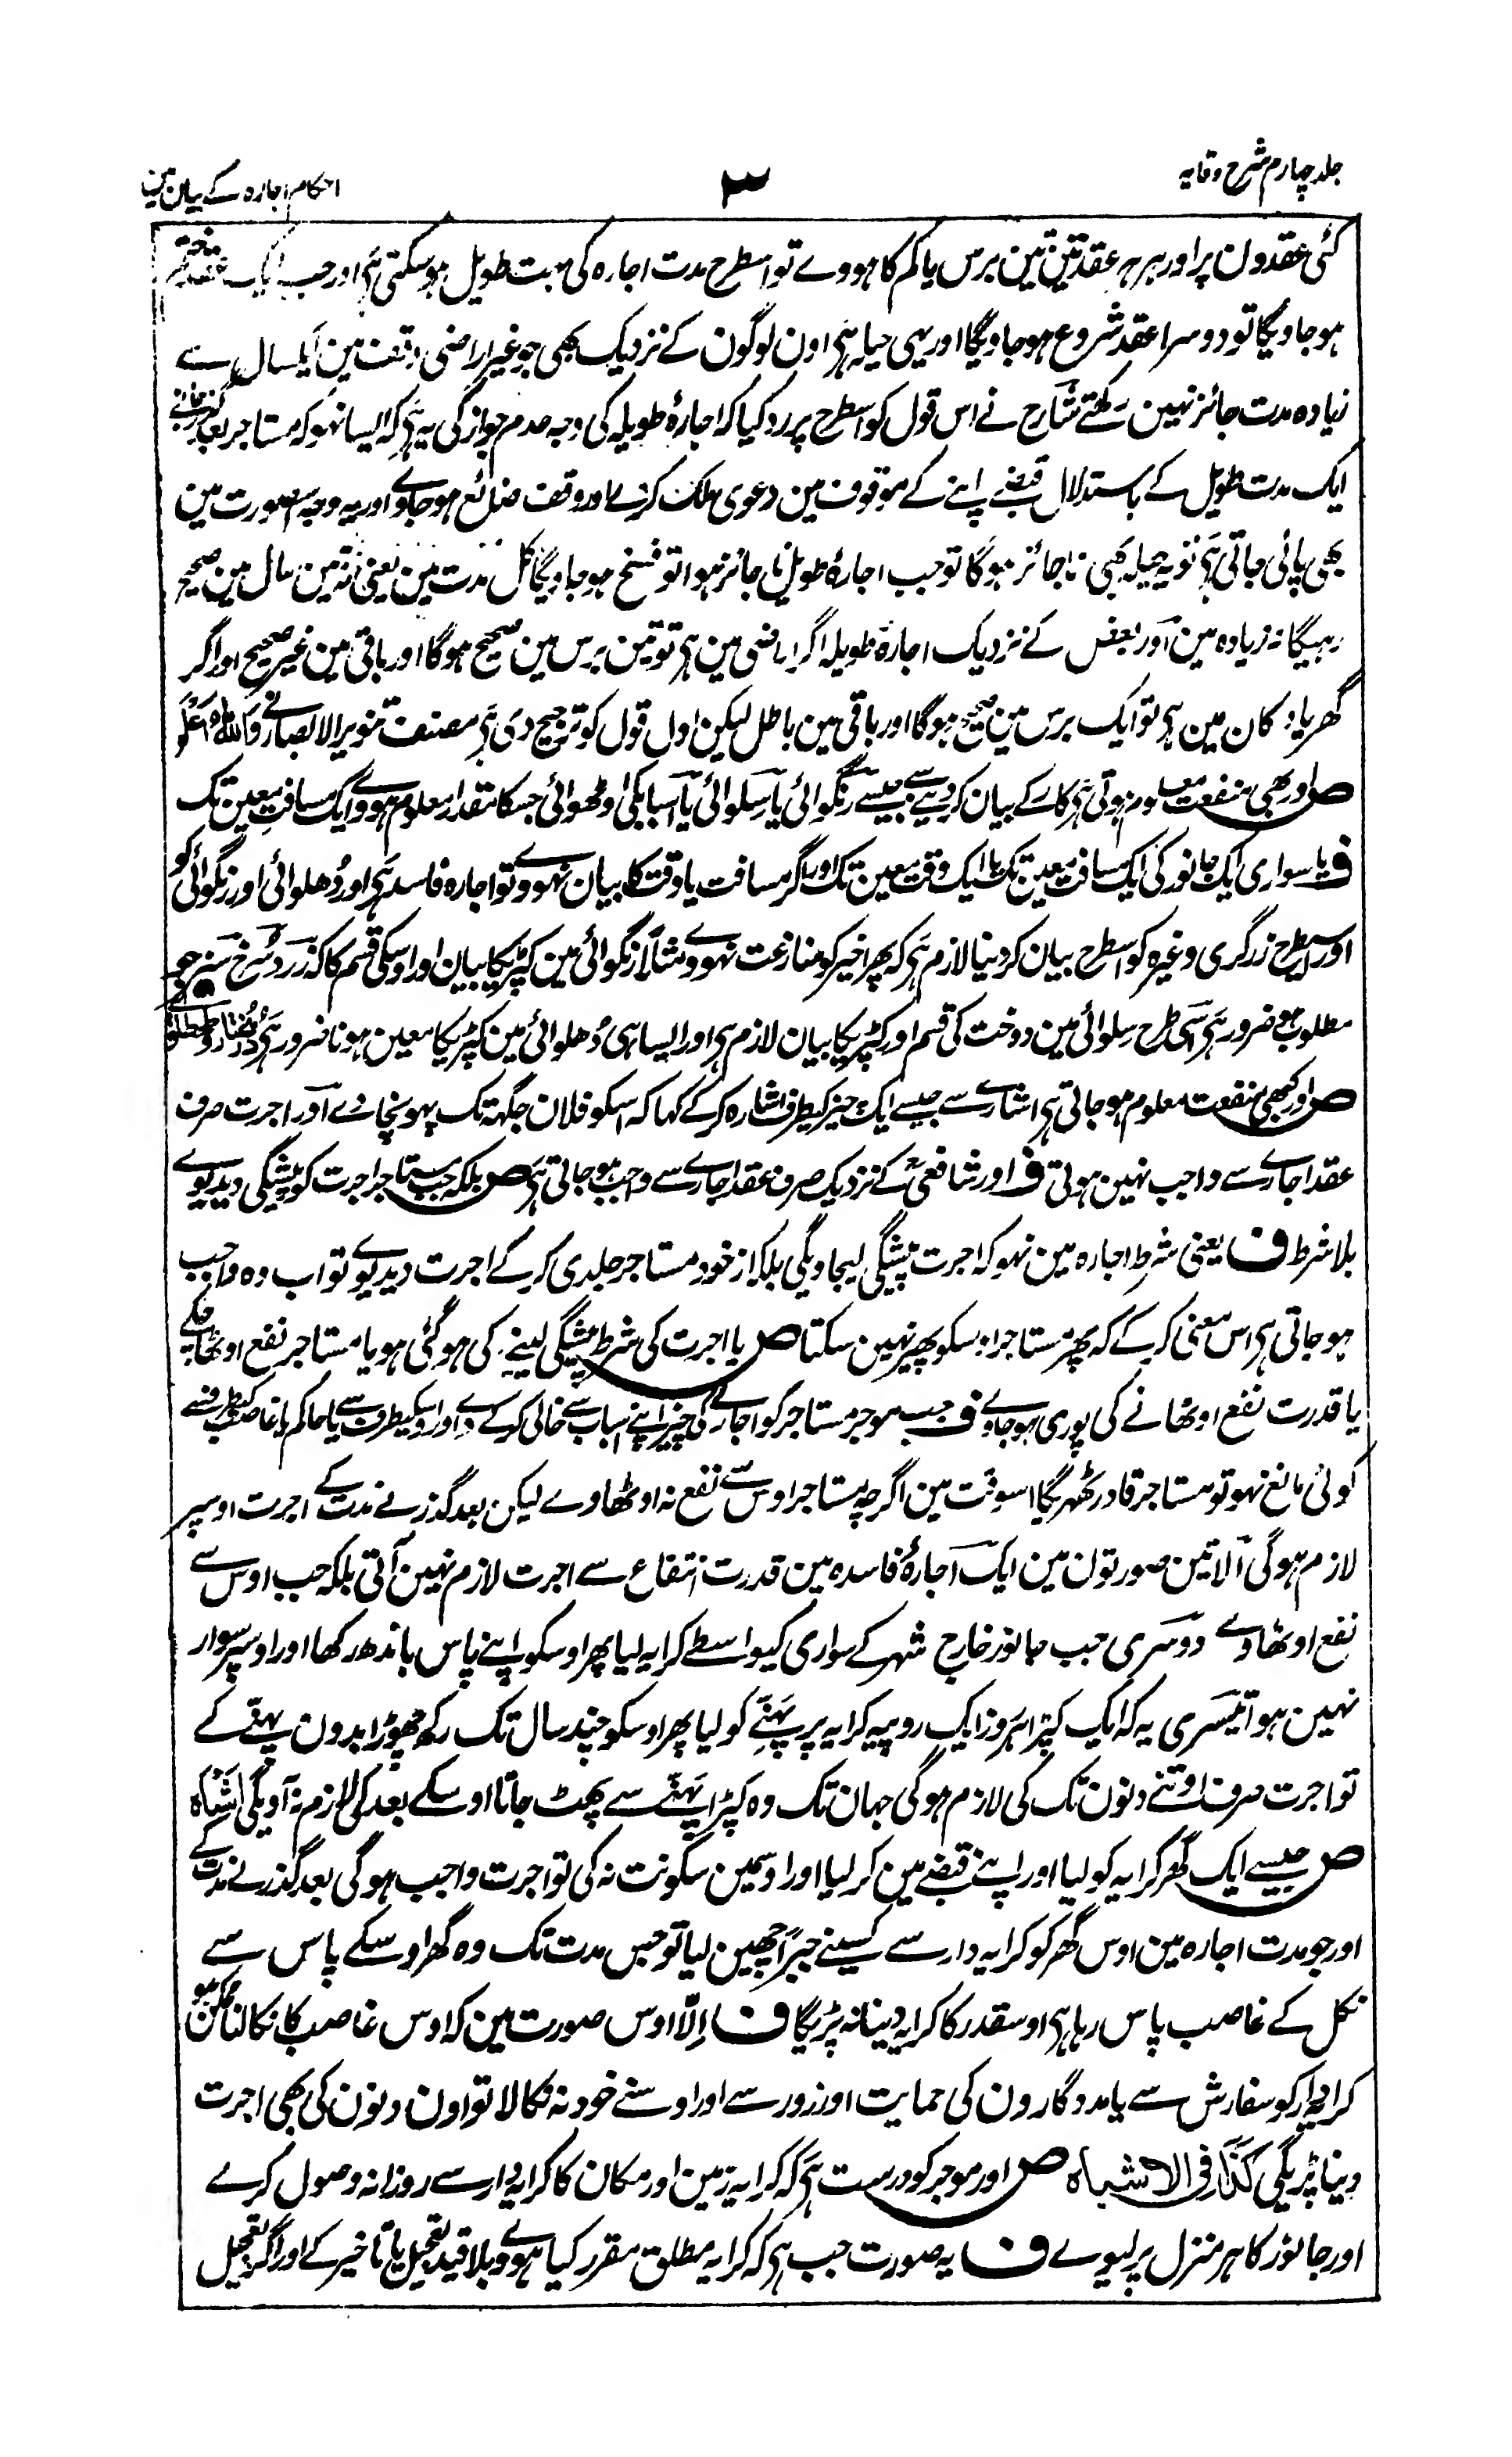 جلد چہارم شرح وقایہ
۳
احکام اجارہ کے بیان مین
کئی عقدون پر اور ہر ہر عقد تین تین برس یا کم کا ہووے تو اسطرح مدت اجارہ کی بہت طویل ہو سکتی ہی اور جب ایک عقد ختم
ہو جاویگا تو دوسرا عقد شروع ہو جاویگا اور یہی حیلہ ہی اون لوگون کے نزدیک بھی جو غیر اراضی وقف مین ایکسال سے
زیادہ مدت جائز نہین رکھتے شارح نے اس قول کو اسطرح پر رد کیا کہ اجارۂ طویلہ کی وجہ عدم جواز کی یہ ہی کہ ایسا نہو کہ مستاجر بعد گذر جانے
ایک مدت طویل کے باستدلال قبضے اپنے کے موقوف مین دعوی ملک کرے اور وقف ضائع ہو جاوے اور یہ وجہ اس صورت مین
بھی پائی جاتی ہی تو یہ حیلہ بھی نا جائز ہوگا تو جب اجارۂ طویل نا جائز ہوا تو فسخ ہو جاویگا کل مدت مین یعنی نہ تین سال مین صحیح
رہیگا نہ زیادہ مین اور بعض کے نزدیک اجارۂ طویلہ اگر اراضی مین ہی تو تین برس مین صحیح ہوگا اور باقی مین غیر صحیح اور اگر
گھر یا دکان مین ہی تو ایک برس مین صحیح ہوگا اور باقی مین باطل لیکن اول قول کو ترجیح دی ہی مصنف تنویر الابصار نے واللہ اعلم
ص اور کبھی منفعت معلوم ہوتی ہی کار کے بیان کر دینے سے جیسے رنگوائی یا سلوائی یا اسباب کی اوٹھوائی جسکا مقدار معلوم ہووے ایک مسافت معین تک
ف یا سواری ایک جانور کی ایک مسافت معین تک یا ایک وقت معین تک اور اگر مسافت یا وقت کا بیان نہووے تو اجارہ فاسد ہی اور دُھلوائی اور رنگوائی کو
اور اسیطرح زرگری وغیرہ کو اسطرح بیان کر دینا لازم ہی کہ پھر اخیر کو منازعت نہووے مثلاً رنگوائی مین کپڑیکا بیان اور اوسکی قسم کا کہ زرد سرخ سبز جو
مطلوب ہو ضرور ہی اسی طرح سلوائی مین دوخت کی قسم اور کپڑیکا بیان لازم ہی اور ایسا ہی دُھلوائی مین کپڑیکا معین ہونا ضرور ہی دُرمختار وطحطاوی
ص اور کبھی منفعت معلوم ہو جاتی ہی اشارے سے جیسے ایک چیز کیطرف اشارہ کر کے کہا کہ اسکو فلان جگہہ تک پہونچا دے اور اجرت صرف
عقد اجارے سے واجب نہین ہوتی ف اور شافعیؒ کے نزدیک صرف عقد اجارے سے واجب ہو جاتی ہی ص بلکہ جب مستاجر اجرت کو پیشگی دیدیوے
بلا شرط ف یعنی شرط اجارہ مین نہو کہ اجرت پیشگی لیجاویگی بلکہ از خود مستاجر جلدی کر کے اجرت دیدیوے تو اب وہ واجب
ہو جاتی ہی اس معنی کر کے کہ پھر مستاجر اوسکو پھیر نہین سکتا ص یا اجرت کی شرط پیشگی لینے کی ہو گئی ہو یا مستاجر نفع اوٹھا چکے
یا قدرت نفع اوٹھانے کی پوری ہو جاوے ف جب موجر مستاجر کو اجارے کی چیز اپنے اسباب سے خالی کر کے دے اور اوسکیطرف سے یا حاکم یا غاصب کیطرف سے
کوئی مانع نہو تو مستاجر قادر ٹھہریگا اسوقت مین اگرچہ مستاجر اوس سے نفع نہ اوٹھاوے لیکن بعد گذرنے مدت کے اجرت اوسپر
لازم ہوگی الا تین صورتون مین ایک اجارۂ فاسدہ مین قدرت انتفاع سے اجرت لازم نہین آتی بلکہ جب اوس سے
نفع اوٹھاوے دوسری جب جانور خارج شہر کے سواری کیواسطے کرایہ لیا پھر اوسکو اپنے پاس باندھ رکھا اور اوسپر سوار
نہین ہوا تیسری یہ کہ ایک کپڑا ہر روز ایک روپیہ کرایہ پر پہنے کو لیا پھر اوسکو چند سال تک رکھ چھوڑا بدون پہنے کے
تو اجرت صرف اوتنے دنون تک کی لازم ہوگی جہان تک وہ کپڑا پہنے سے پھٹ جاتا اوسکے بعد کی لازم نہ آویگی اشباہ
ص جیسے ایک گھر کرایہ کو لیا اور اپنے قبضے مین کر لیا اور اوسمین سکونت نہ کی تو اجرت واجب ہوگی بعد گذرنے مدت کے
اور جو مدت اجارہ مین اوس گھر کو کرایہ دار سے کسینے جبراً چھین لیا تو جس مدت تک وہ گھر اوسکے پاس سے
نکل کے غاصب پاس رہا ہی اوسقدر کا کرایہ دینا نہ پڑیگا ف اِلّا اوس صورت مین کہ اوس غاصب کا نکالنا ممکن ہو
کرایہ دار کو سفارش سے یا مددگارون کی حمایت اور زور سے اور اوسنے خود نہ نکالا تو اون دنون کی بھی اجرت
دینا پڑیگی کذا فی الاشباہ ص اور موجر کو درست ہی کہ کرایہ زمین اور مکان کا کرایہ دار سے روزانہ وصول کرے
اور جانور کا ہر منزل پر لیوے ف یہ صورت جب ہی کہ کرایہ مطلق مقرر کیا ہووے بلا قید تعجیل یا تاخیر کے اور اگر تعجیل